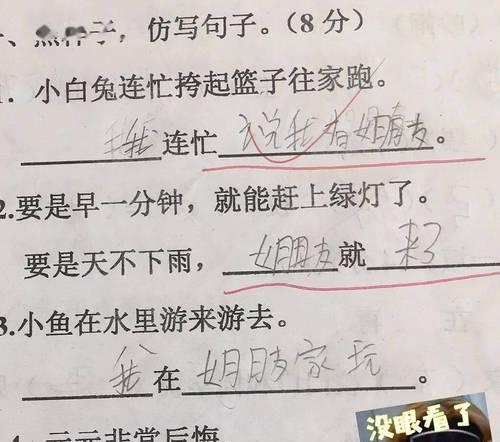 、照样子，仿写句子。（8分）
1. 小白兔连忙挎起篮子往家跑。
我连忙说我有女朋友。
2.要是早一分钟，就能赶上绿灯了。
要是天不下雨，女朋友就来了
3.小鱼在水里游来游去。
我在女朋友家玩。
元元非常后悔
没眼看了